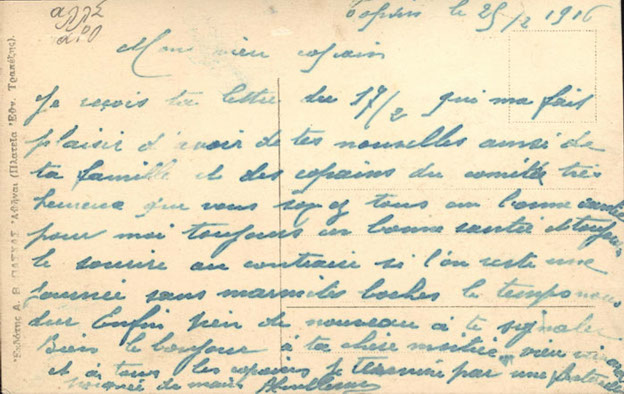 le 25/2 1916
Mon vieux copain
Je reçois ta lettre du 17/2 qui ma fait
plaisir d'avoir de tes nouvelles ainsi de
ta famille et des copains du comité très
heureux que vous soyez tous en bonne santé
pour moi toujours en bonne santée et toujours
le sourire au contraire si l'on reste une
journée sans marmites boches le temps nous
dur Enfin rien de nouveau a te signaler
Bien le bonjour à ta chère moitié vieux
et à tous les copains je termine par une
poignée de mains
Ἐκδότης Α. Β. ΠΑΣΧΑΣ Ἀθῆναι (Πλατεῖα Ἐθν. Τραπέζης).